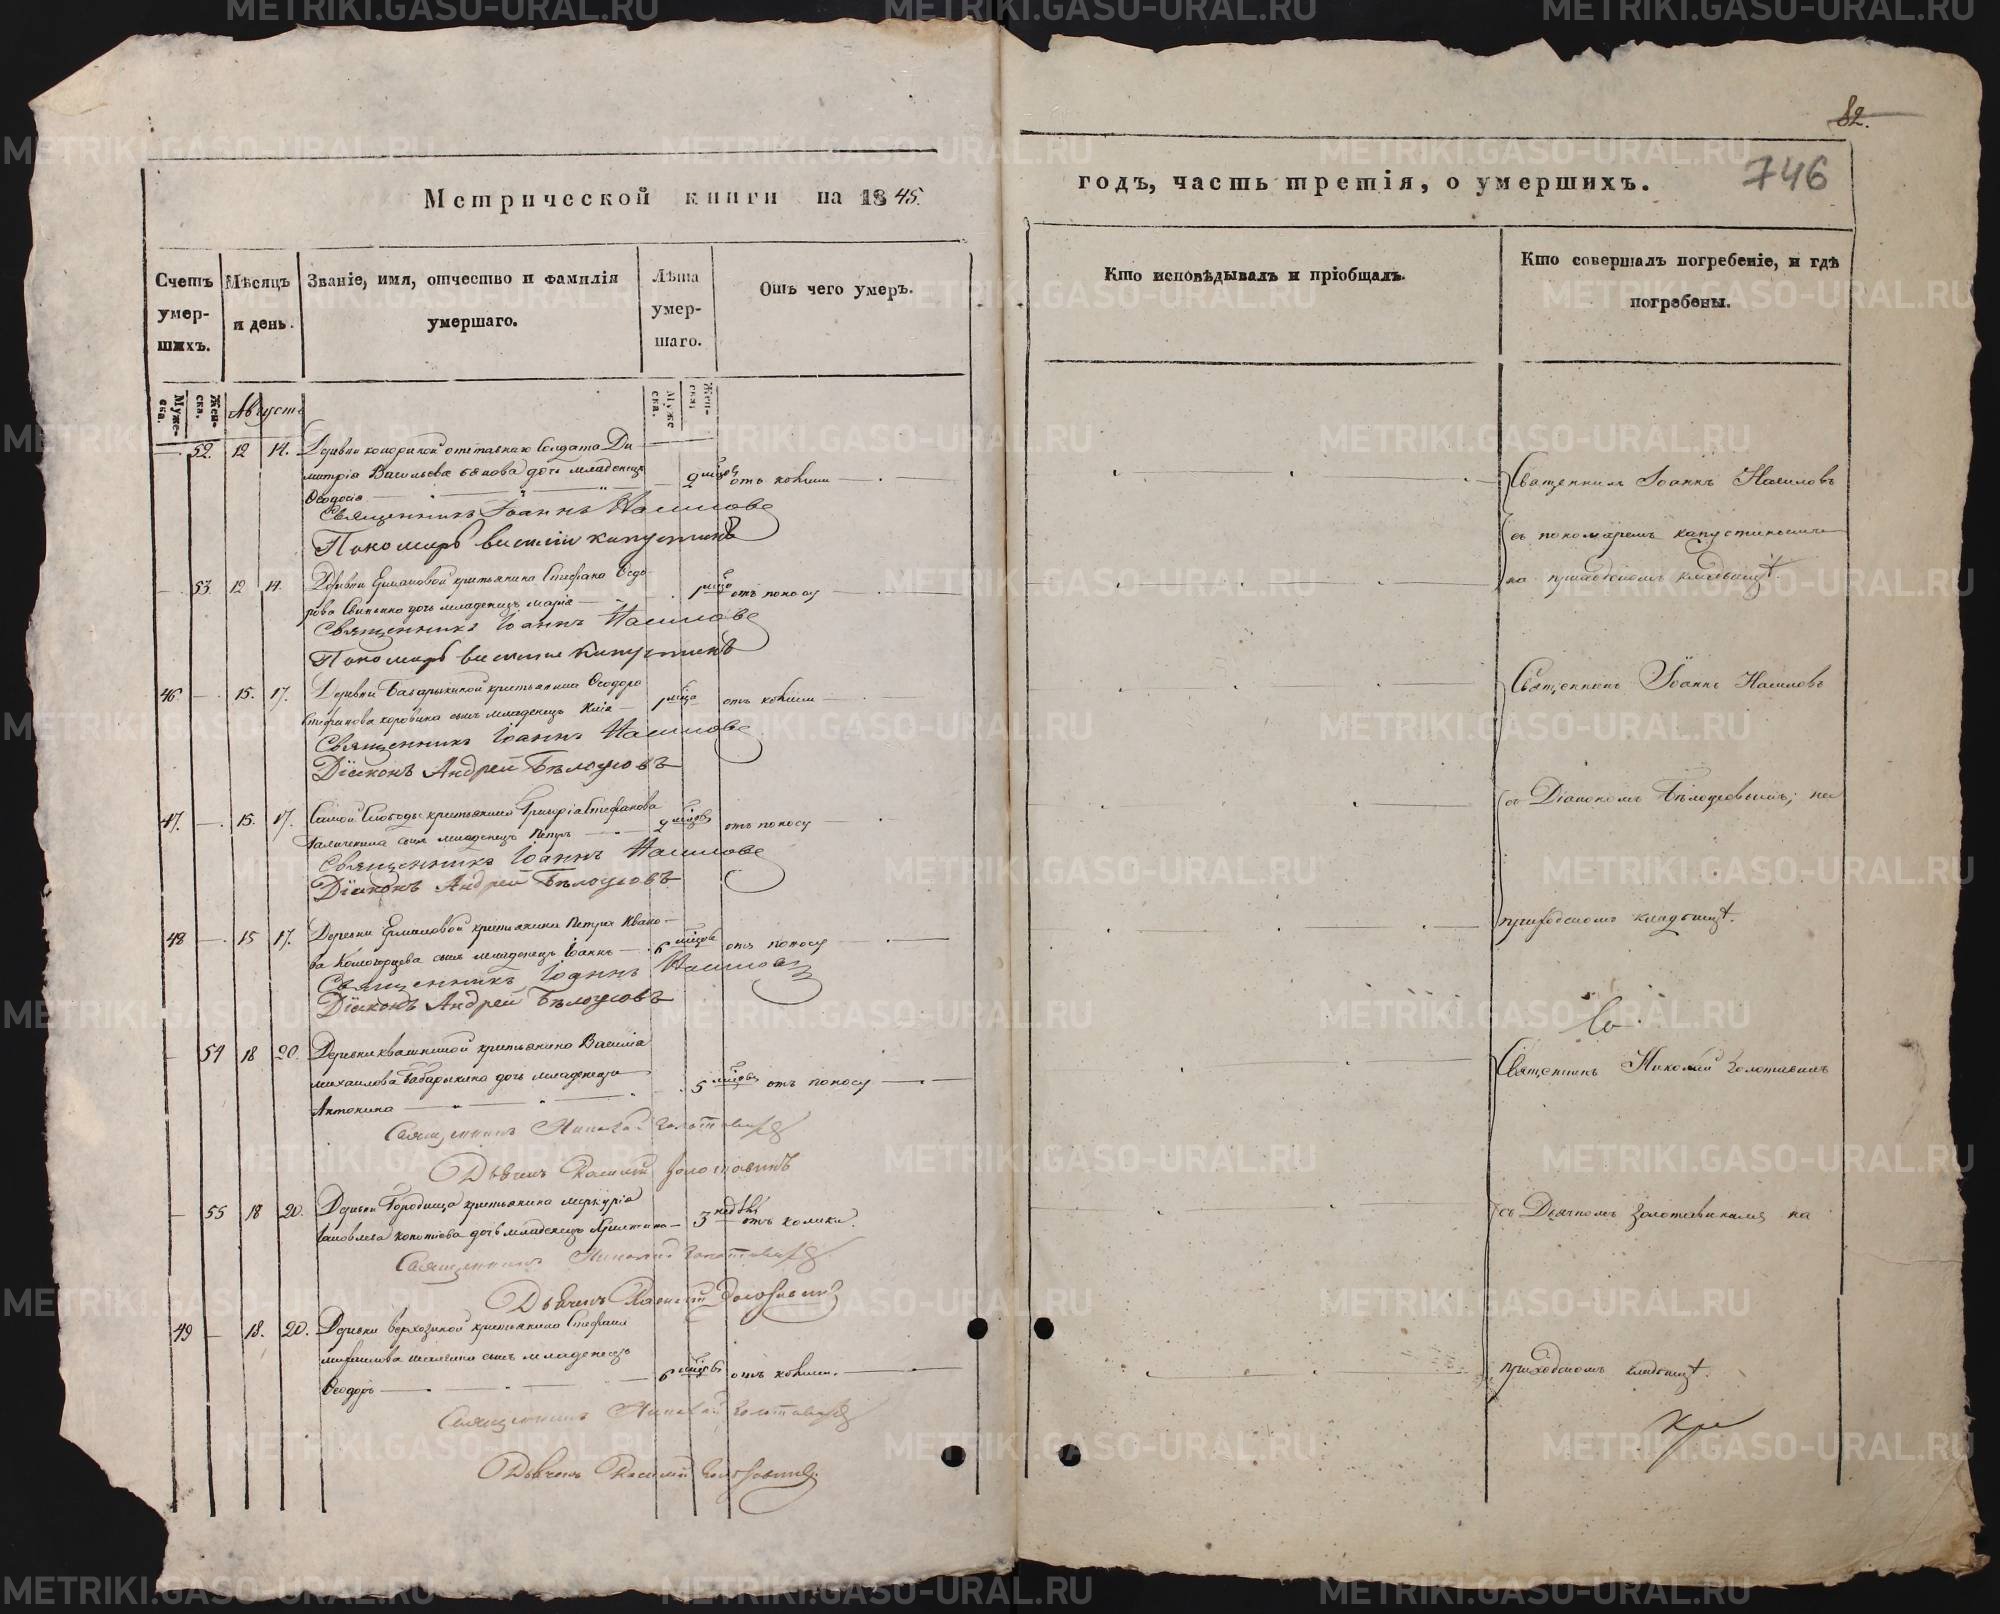 82.
746
Метрической книги на 1845.
годъ, часть третія, о умершихъ.
Счетъ умер-шихъ.
Мѣсяцъ и день.
Званіе, имя, отчество и фамилія умершаго.
Лѣта умер-шаго.
Отъ чего умеръ.
Кто исповѣдывалъ и пріобщалъ.
Кто совершалъ погребеніе, и гдѣ погребены.
Муже-ска.
Жен-ска.
Августъ
Муже ска.
Жен-ска.
52. 12 14. Деревни отставнаго Солдата Ди-
митрія Васильева дочь младенецъ 2 мѣсяц
Ѳеодосія
Священникъ Іоаннъ Насиловъ
Пономарь Василій Капустинъ
53. 12 14. Деревни Ермаковой крестьянина Стефана Ѳедо-
рова дочь младенецъ Марія 1 мѣсц отъ поносу
Священникъ Іоаннъ Насиловъ
Пономарь Василій Капустинъ
46 15. 17. Деревни Бабарыкиной крестьянина Ѳеодора
Стефанова Коровина сынъ младенецъ 1 мѣсца отъ
Священникъ Іоаннъ Насиловъ
Діаконъ Андрей Бѣлоусовъ
47. 15. 17. Самой Слободы крестьянина Григорія Стефанова
Галичкина сынъ младенецъ Петръ 2 мѣсцовъ отъ поносу
Священникъ Іоаннъ Насиловъ
Діаконъ Андрей Бѣлоусовъ
48 15 17. Деревни Ермаковой крестьянина Петра Ивано-
ва сынъ младенецъ Іоаннъ 6 мѣсцовъ отъ поносу
Священникъ Іоаннъ Насиловъ
Діаконъ Андрей Бѣлоусовъ
54 18 20. Деревни Квашниной крестьянина Василія
Михаилова Бабарыкина дочь младенецъ
Антонина 5 мѣсцовъ отъ поносу
Священникъ Николай Золотавинъ
Дьячекъ Василій Золотавинъ
55 18 20. Деревни Городища крестьянина Меркурія
Іаковлева дочь младенецъ Христина 3 недѣль отъ колики.
Священникъ Николай Золотавинъ
Дьячекъ Василій Золотавинъ
49 18. 20. Деревни крестьянина Стефана
сынъ младенецъ
Ѳеодоръ 6 мѣсцовъ отъ
Священникъ Николай Золотавинъ
Дьячекъ Василій Золотавинъ
Священникъ Іоаннъ Насиловъ
съ пономаремъ Капустинымъ
на приходскомъ кладбищѣ.
Священникъ Іоаннъ Насиловъ
съ Діакономъ Бѣлоусовымъ; на
приходскомъ кладбищѣ.
Священникъ Николай Золотавинъ
съ Дьячкомъ Золотавинымъ на
приходскомъ кладбищѣ.
METRIKI.GASO-URAL.RU